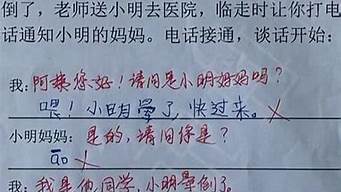 倒了，老师送小明去医院，临走时让你打电
话通知小明的妈妈。电话接通，谈话开始：
我：阿姨您好！请问是小明妈妈吗？
喂！小明晕了，快过来。
小明妈妈：是的，请问你是？
āo
我：我是他同学，小明晕倒了